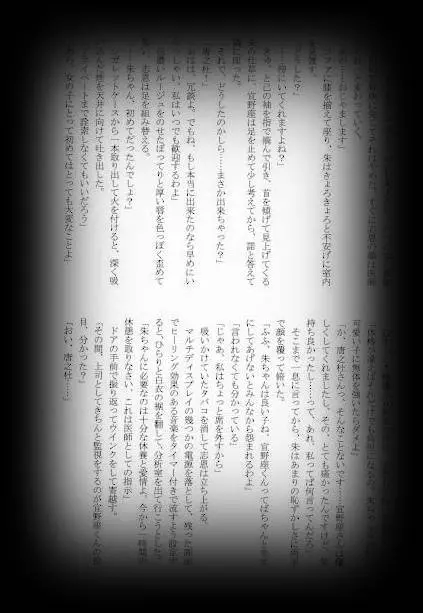 …おじゃまします」
ファに膝を揃えて座り、朱はきょろきょろと不安げに室内
…待にいてくれますよね？」
と、己の袖を指で摘んで引き、首を傾げて見上げてくる
の仕草に、宜野座は足を止めて少し考えてから、諾と答えて
に戻った。
それで、どうしたのかしら…まさか出来ちゃった？」
唐之杜！」
には、冗談よ。でもね、もし本当に出来たのなら早めにい
しゃい、私はいつでも歓迎するわよ」
濃いルージュをのせたぽってりと厚い唇を色っぽく歪めて
志恩は足を組み替える。
…朱ちゃん、初めてだったんでしょ？」
ガレットケースから一本取り出して火を付けると、深く吸
んだ煙を天井に向けて吐き出した。
ライベートまで詮索しなくてもいいだろう」
あら、女の子にとって初めてはとっても大変なことよ」
可愛い子に無体を強いたらダメよ」
「か、唐之杜さんっ、そんなことないです……宜野座さんは優
しくしてくれましたし、その、とても痛かったんですけど、気
持ち良かったし……って、あれ、私ってば何言ってんだろ」
そこまで一息に言ってから、朱はあまりの恥ずかしさに両手
で顔を覆って俯いた。
「ふふ、朱ちゃんは良い子ね。宜野座くんってばちゃんと大事
にしてあげないとみんなから怨まれるわよ」
「言われなくても分かっている」
「じゃあ、私はちょっと席を外すから」
吸いかけていたタバコを消して志恩は立ち上がる。
マルチディスプレイの幾つかの電源を落として、残った画面
でヒーリング効果のある音楽をタイマー付きで流すよう設定す
ると、ひらりと白衣の裾を翻して、分析室を出て行こうとした。
「朱ちゃんに必要なのは十分な休養と愛情よ。今から一時間の
休憩を取りなさい、これは医師としての指示」
ドアの手前で振り返ってウインクをして寄越す。
「その間、上司としてきちんと監視をするのが宜野座くんの役
目、分かった？」
「おい、唐之杜……」